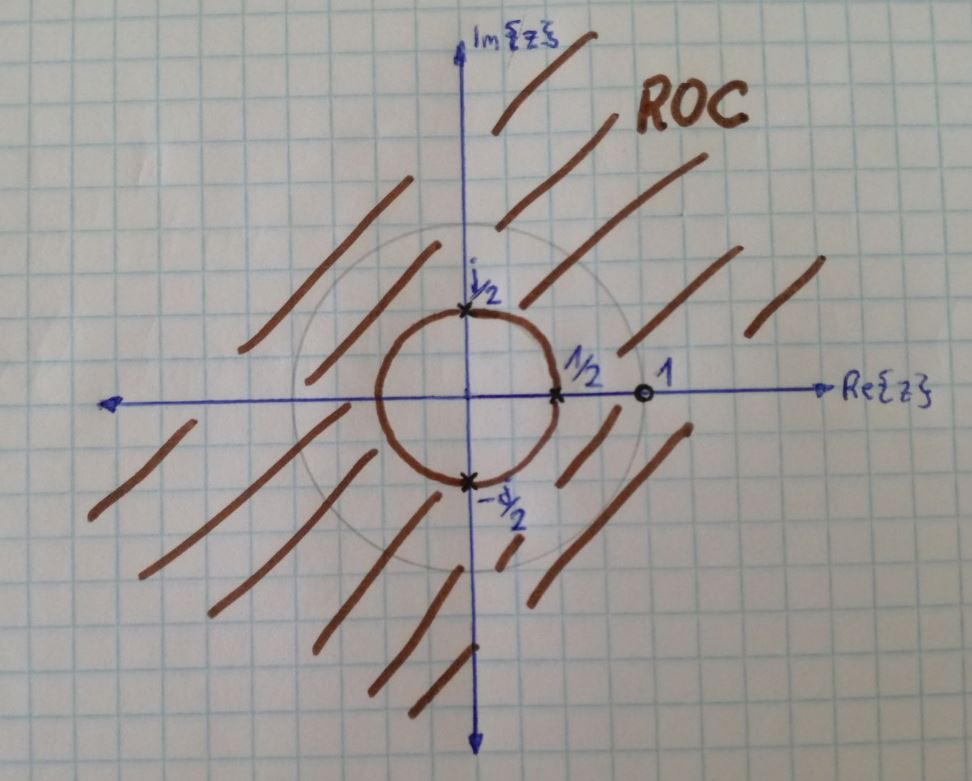 Im{z}
ROC
j/2
1/2
1
Re{z}
-j/2